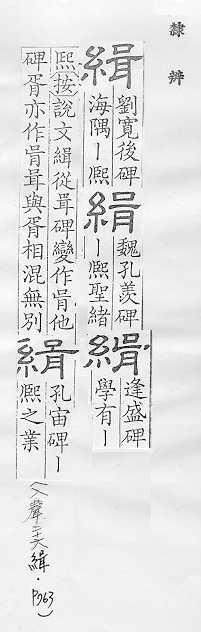 隸辨
緝
劉寬後碑
海隅丨熙
緝
魏孔羨碑
丨熙聖緒
緝
逢盛碑
學有丨
熙按說文緝從咠碑變作肙他
碑胥亦作肙咠與胥相混無別
緝
孔宙碑丨
熙之業
(入聲二十六緝．P763)